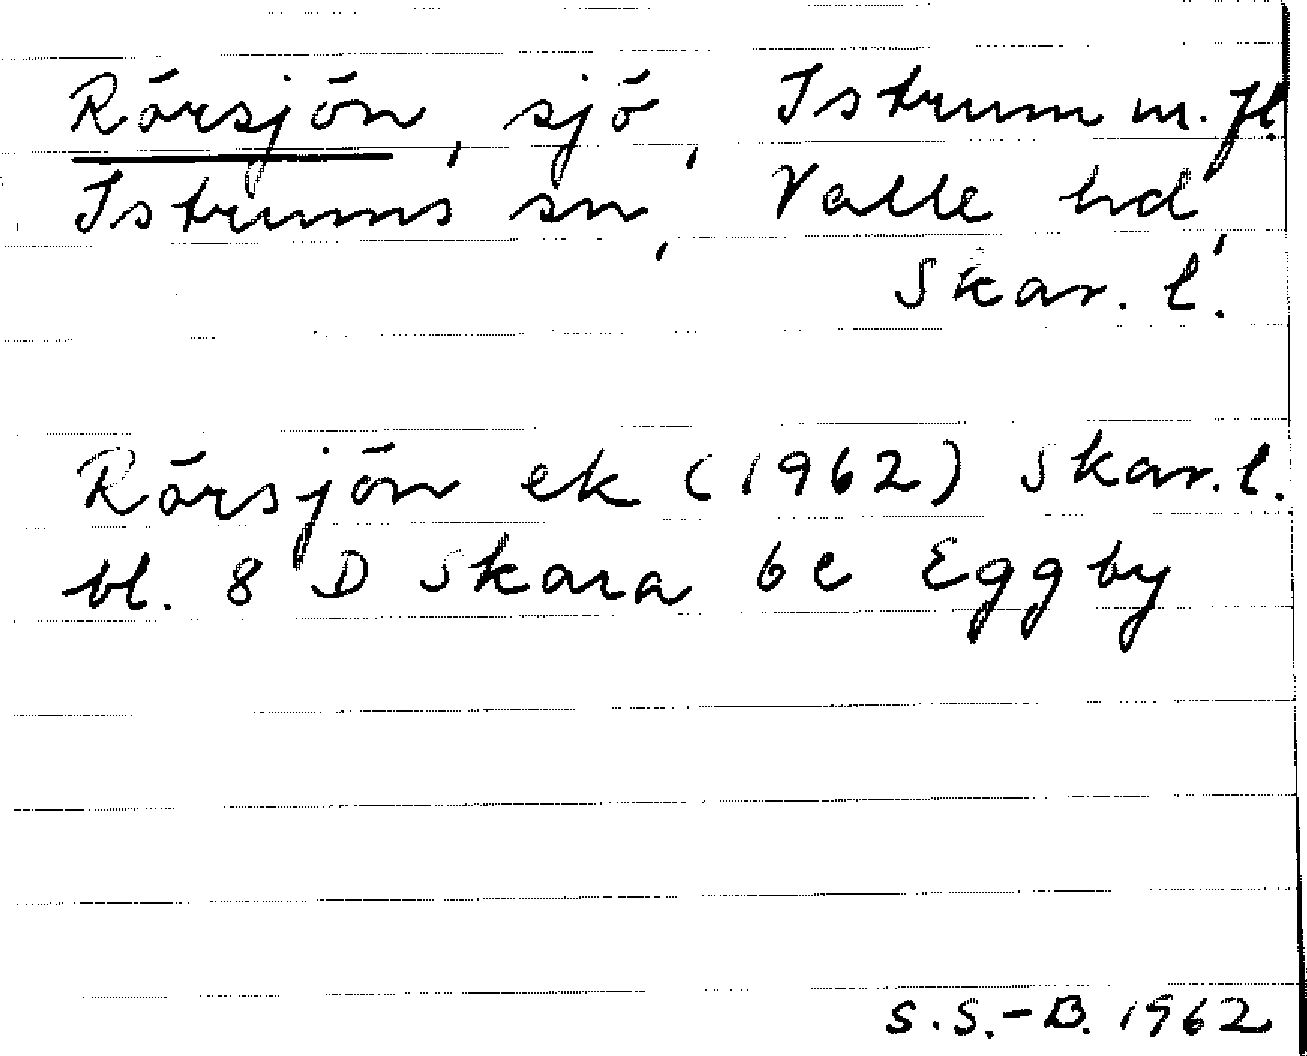 Rörsjön, sjö, Istrum m. fl.
Istrums sn, Valle hd,
Skar. l.
Rörsjön ek (1962) Skar. l.
bl. 8 D Skara 6e Eggby
S.S.-B. 1962